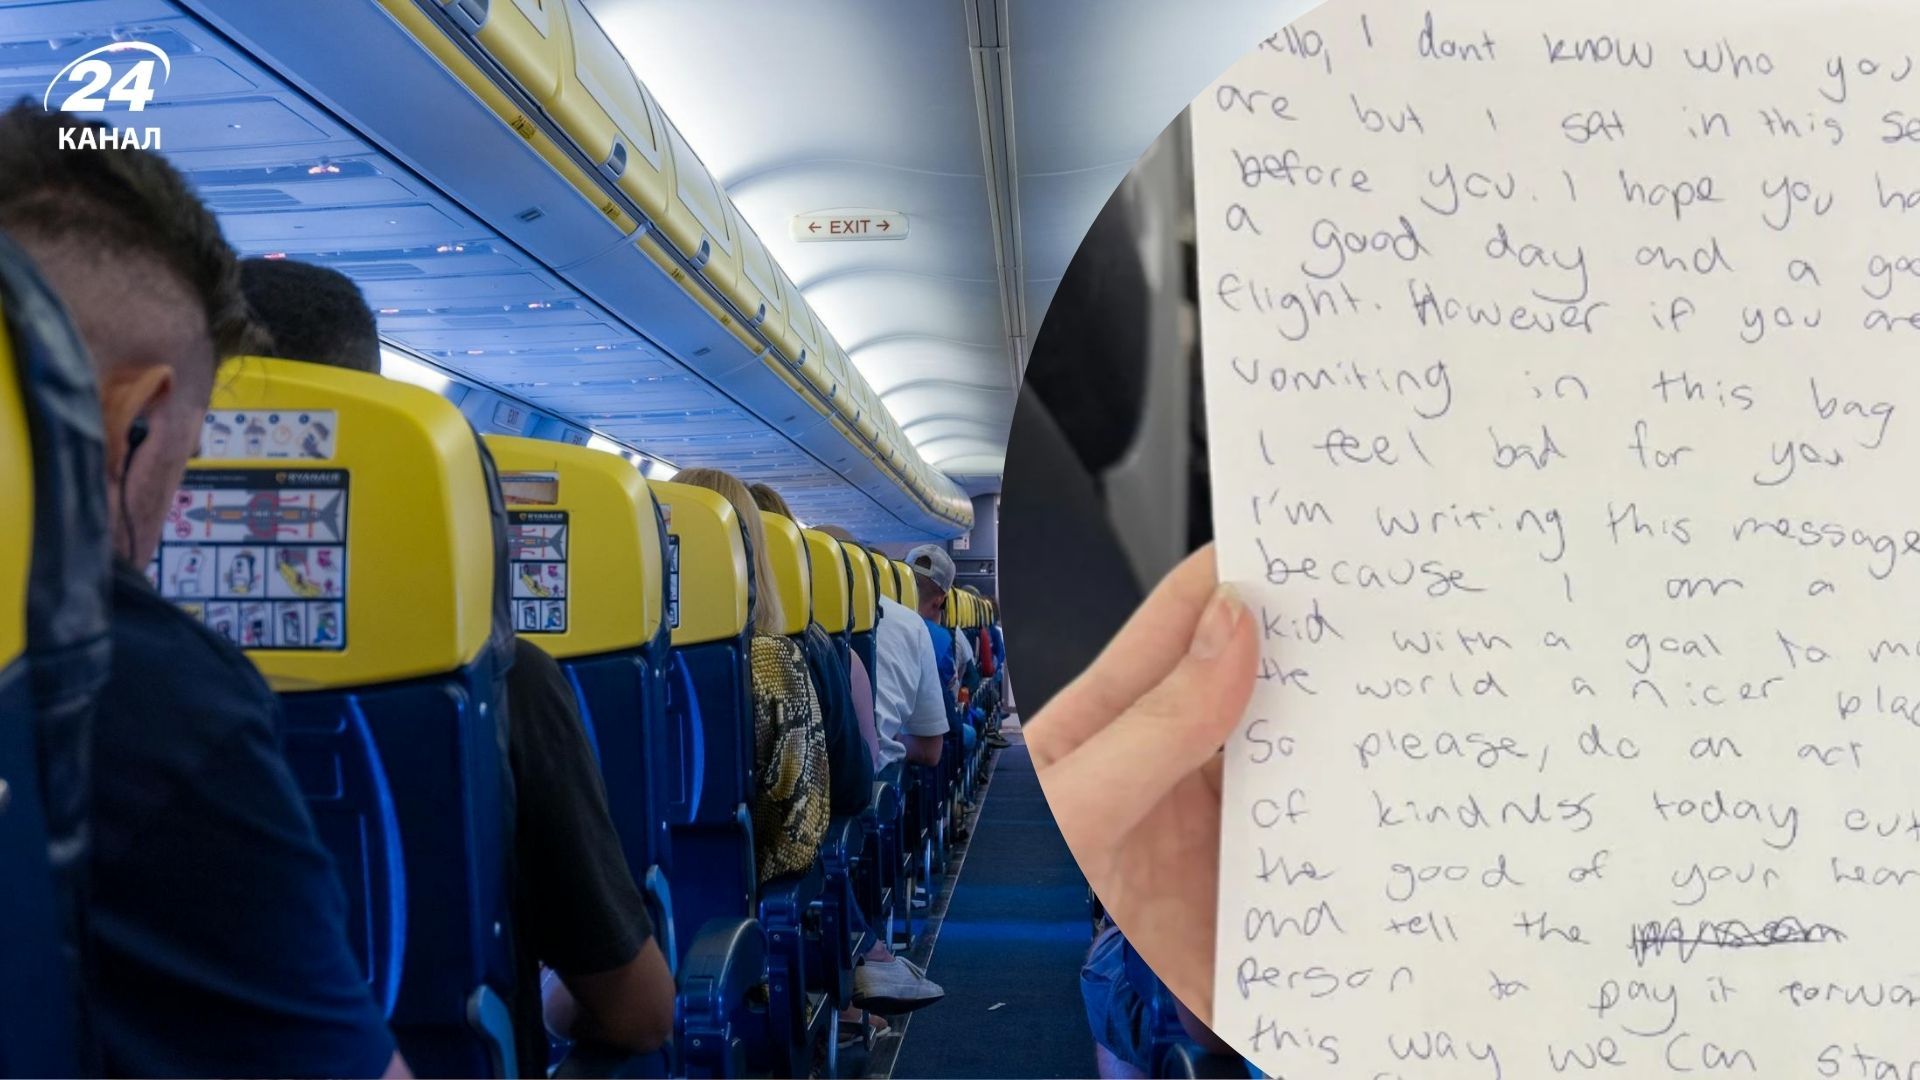 24
КАНАЛ
← EXIT →
EXIT
RYANAIR
RYANAIR
I dont know who you
are but I sat in this
before you. I hope you
a good day and a
flight. However if you are
vomiting in this bag
I feel bad for you
I'm writing this message
because I am a
kid with a goal to
the world a nicer
So please, do an act
of kindness today
the good of your
and tell the
person to pay it
this way we can